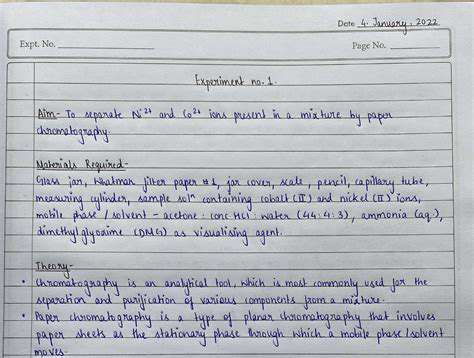 Date 4. January, 2022
Expt. No.
Page No.
Experiment no. 1.
Aim- To separate Ni²⁺ and Co²⁺ ions present in a mixture by paper
chromatography.
Materials Required-
Glass jar, Whatman filter paper #1, jar cover, scale, pencil, capillary tube,
measuring cylinder, sample solⁿ containing cobalt (II) and nickel (II) ions,
mobile phase / solvent - acetone : conc HCl : water (44:4:3), ammonia (aq.),
dimethylglyoxime (DMG) as visualising agent.
Theory-
• Chromatography is an analytical tool, which is most commonly used for the
separation and purification of various components from a mixture.
• Paper chromatography is a type of planar chromatography that involves
paper sheets as the stationary phase through which a mobile phase/solvent
moves.